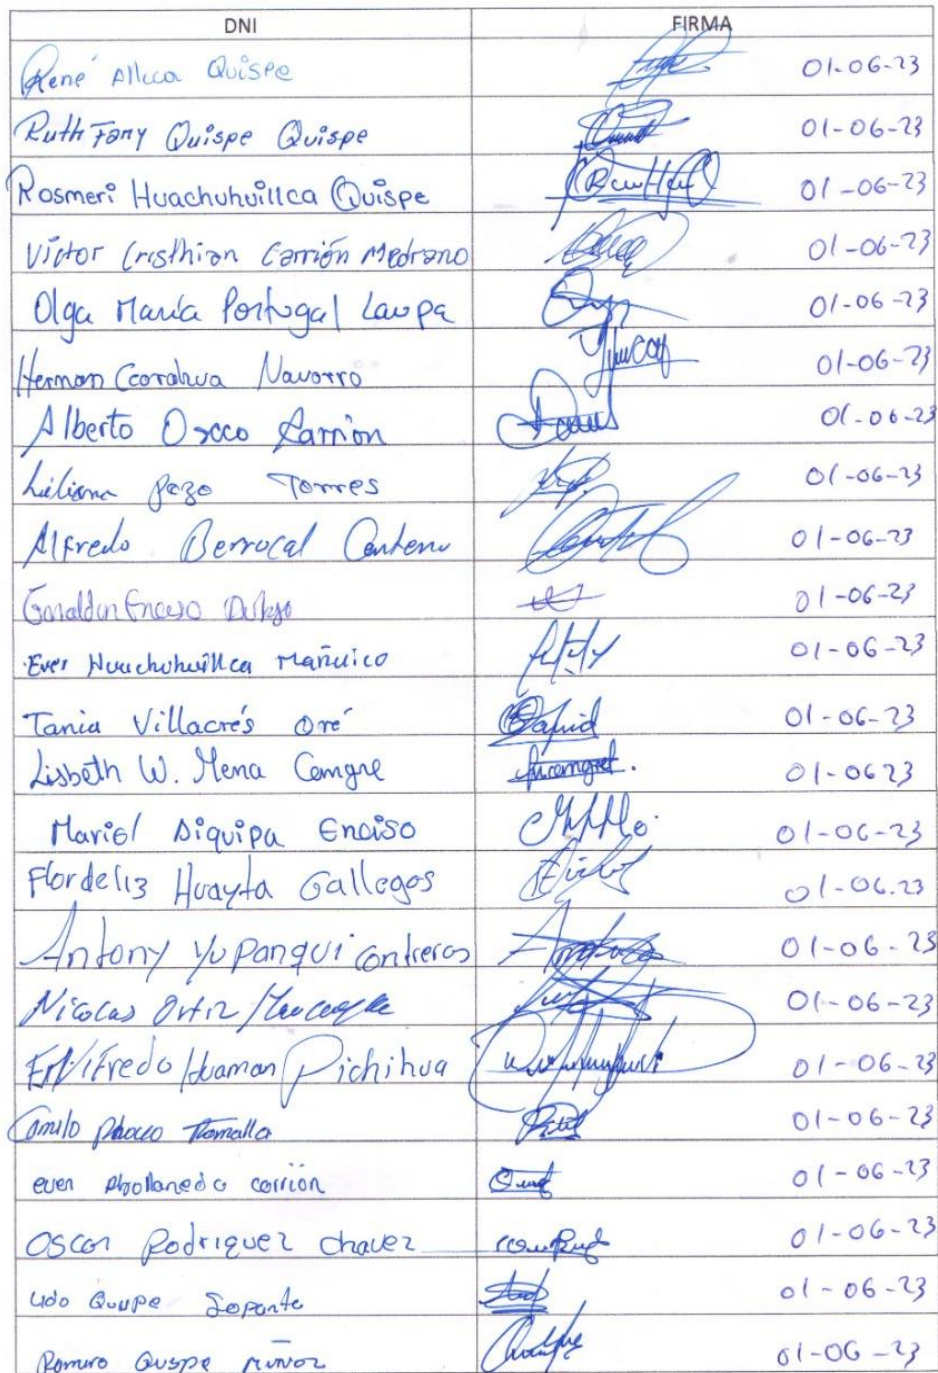 DNI FIRMA
René Allcca Quispe 01-06-23
Ruth Fany Quispe Quispe 01-06-23
Rosmeri Huachuhuillca Quispe 01-06-23
Víctor Cristhian Carrión Medrano 01-06-23
Olga María Portugal Laupa 01-06-23
Herman Ccorahua Navarro 01-06-23
Alberto Orcco Carrion 01-06-23
Liliana Pozo Torres 01-06-23
Alfredo Berrocal Centeno 01-06-23
01-06-23
Ever Huachuhuillca Mañuico 01-06-23
Tania Villacrés Oré 01-06-23
Lisbeth W. Mena Camgre 01-0623
Mariel Diquipa Enciso 01-06-23
Flordeliz Huayta Gallegos 01-06.23
Antony Yupanqui Contreras 01-06-23
Nicolas Ortiz 01-06-23
Huaman Pichihua 01-06-23
Camilo 01-06-23
ever carrión 01-06-23
Oscar Rodriguez chavez 01-06-23
01-06-23
Quspe Muñoz 01-06-23